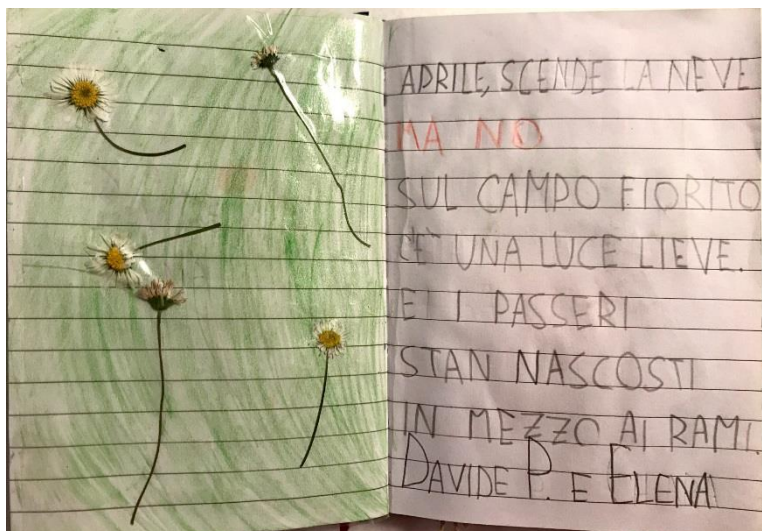 APRILE, SCENDE LA NEVE
MA NO
SUL CAMPO FIORITO
C'È UNA LUCE LIEVE.
E I PASSERI
STAN NASCOSTI
IN MEZZO AI RAMI.
DAVIDE P. E ELENA